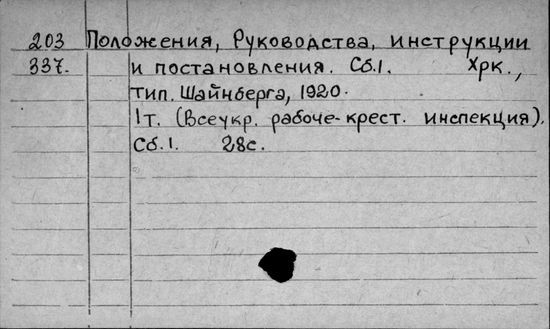 203 Положения, Руководства, инструкции
337. и постановления. Сб.1. Хрк.,
тип. Шайнберга, 1920.
1т. (Всеукр. рабоче-крест. инспекция).
Сб.1. 28с.